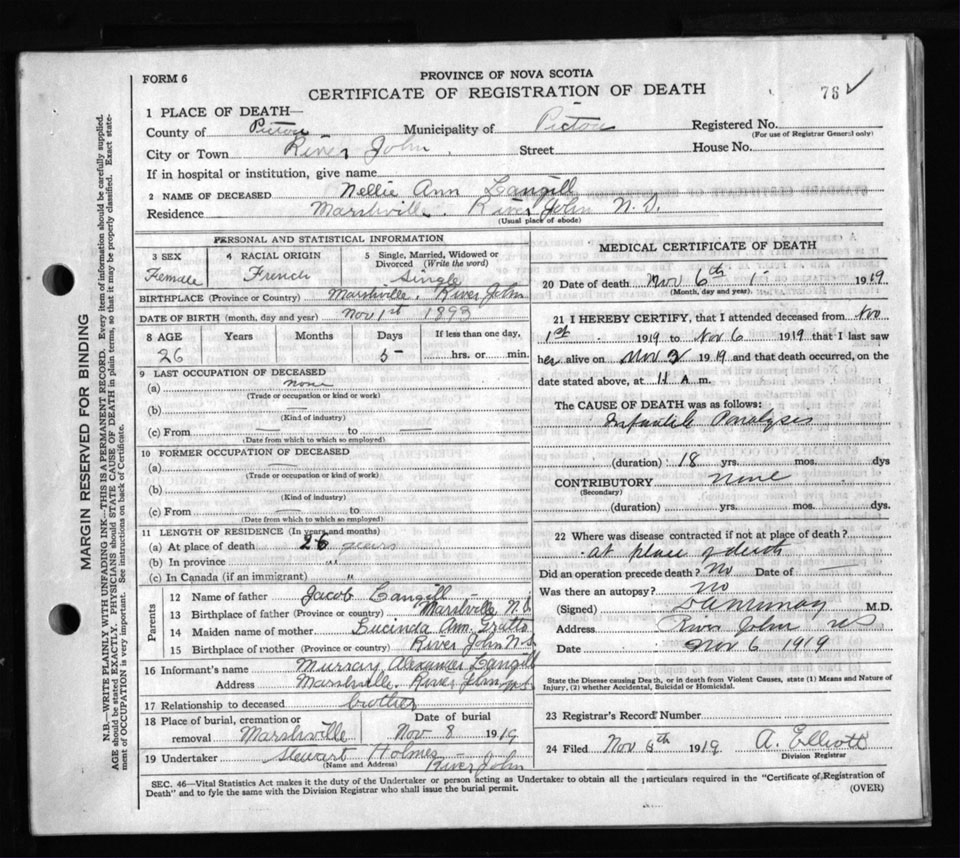 FORM 6
PROVINCE OF NOVA SCOTIA
CERTIFICATE OF REGISTRATION OF DEATH
76
1 PLACE OF DEATH—
County of Pictou Municipality of Pictou Registered No.
(For use of Registrar General only)
City or Town River John Street House No.
If in hospital or institution, give name
2 NAME OF DECEASED Nellie Ann Langill
Residence Marshville River John N.S.
(Usual place of abode)
PERSONAL AND STATISTICAL INFORMATION
3 SEX Female
4 RACIAL ORIGIN French
5 Single, Married, Widowed or Divorced (Write the word) Single
BIRTHPLACE (Province or Country) Marshville River John
DATE OF BIRTH (month, day and year) Nov 1st 1893
8 AGE Years Months Days If less than one day,
26 5 hrs. or min.
9 LAST OCCUPATION OF DECEASED
(a) none
(Trade or occupation or kind or work)
(b) —
(Kind of industry)
(c) From — to —
(Date from which to which so employed)
10 FORMER OCCUPATION OF DECEASED
(a) —
(Trade or occupation or kind of work)
(b)
(Kind of industry)
(c) From — to
(Date from which to which so employed)
11 LENGTH OF RESIDENCE (In years and months)
(a) At place of death 26 years
(b) In province "
(c) In Canada (if an immigrant) "
Parents
12 Name of father Jacob Langill
13 Birthplace of father (Province or country) Marshville N.S.
14 Maiden name of mother Lucinda Ann
15 Birthplace of mother (Province or country) River John N.S.
16 Informant's name Murray Alexander Langill
Address Marshville River John N.S.
17 Relationship to deceased brother
18 Place of burial, cremation or removal Marshville
Date of burial Nov 8 1919
19 Undertaker Stewart Holmes
(Name and Address) River John
MEDICAL CERTIFICATE OF DEATH
20 Date of death Nov 6th 1919
(Month, day and year)
21 I HEREBY CERTIFY, that I attended deceased from Nov
1st 1919 to Nov 6 1919 that I last saw
her alive on Nov 2 1919 and that death occurred, on the
date stated above, at 11 A m.
The CAUSE OF DEATH was as follows:
Infantile Paralysis
(duration) 18 yrs. mos. dys
CONTRIBUTORY None
(Secondary)
(duration) yrs. mos. dys.
22 Where was disease contracted if not at place of death?
at place of death
Did an operation precede death? No Date of —
Was there an autopsy? No
(Signed) M.D.
Address River John NS
Date Nov 6 1919
State the Disease causing Death, or in death from Violent Causes, state (1) Means and Nature of
Injury, (2) whether Accidental, Suicidal or Homicidal.
23 Registrar's Record Number
24 Filed Nov 1919 A. Elliott
Division Registrar
SEC. 46—Vital Statistics Act makes it the duty of the Undertaker or person acting as Undertaker to obtain all the particulars required in the "Certificate of Registration of
Death" and to fyle the same with the Division Registrar who shall issue the burial permit.
(OVER)
MARGIN RESERVED FOR BINDING
N.B.—WRITE PLAINLY WITH UNFADING INK—THIS IS A PERMANENT RECORD. Every item of information should be carefully supplied.
AGE should be stated EXACTLY. PHYSICIANS should STATE CAUSE OF DEATH in plain terms, so that it may be properly classified. Exact statement
of OCCUPATION is very important. See instructions on back of Certificate.